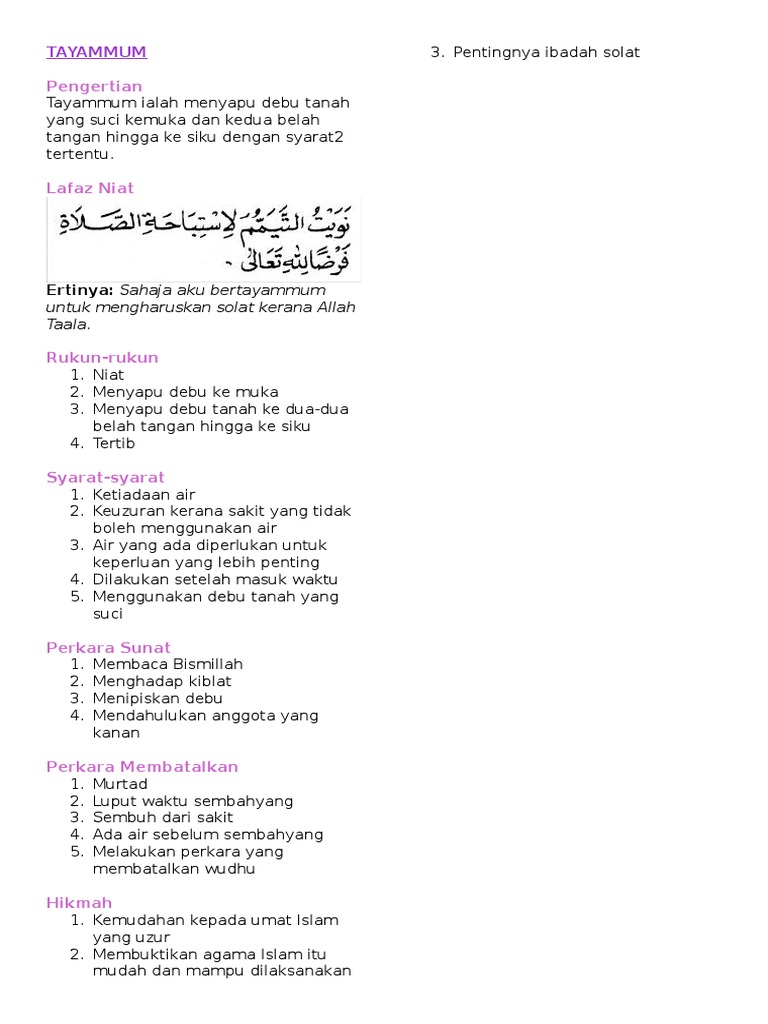 TAYAMMUM
Pengertian
Tayammum ialah menyapu debu tanah
yang suci kemuka dan kedua belah
tangan hingga ke siku dengan syarat2
tertentu.
Lafaz Niat
نَوَيْتُ التَّيَمُّمَ لِاسْتِبَاحَةِ الصَّلَاةِ
فَرْضًا لِلّٰهِ تَعَالَى .
Ertinya: Sahaja aku bertayammum
untuk mengharuskan solat kerana Allah
Taala.
Rukun-rukun
1. Niat
2. Menyapu debu ke muka
3. Menyapu debu tanah ke dua-dua
belah tangan hingga ke siku
4. Tertib
Syarat-syarat
1. Ketiadaan air
2. Keuzuran kerana sakit yang tidak
boleh menggunakan air
3. Air yang ada diperlukan untuk
keperluan yang lebih penting
4. Dilakukan setelah masuk waktu
5. Menggunakan debu tanah yang
suci
Perkara Sunat
1. Membaca Bismillah
2. Menghadap kiblat
3. Menipiskan debu
4. Mendahulukan anggota yang
kanan
Perkara Membatalkan
1. Murtad
2. Luput waktu sembahyang
3. Sembuh dari sakit
4. Ada air sebelum sembahyang
5. Melakukan perkara yang
membatalkan wudhu
Hikmah
1. Kemudahan kepada umat Islam
yang uzur
2. Membuktikan agama Islam itu
mudah dan mampu dilaksanakan
3. Pentingnya ibadah solat